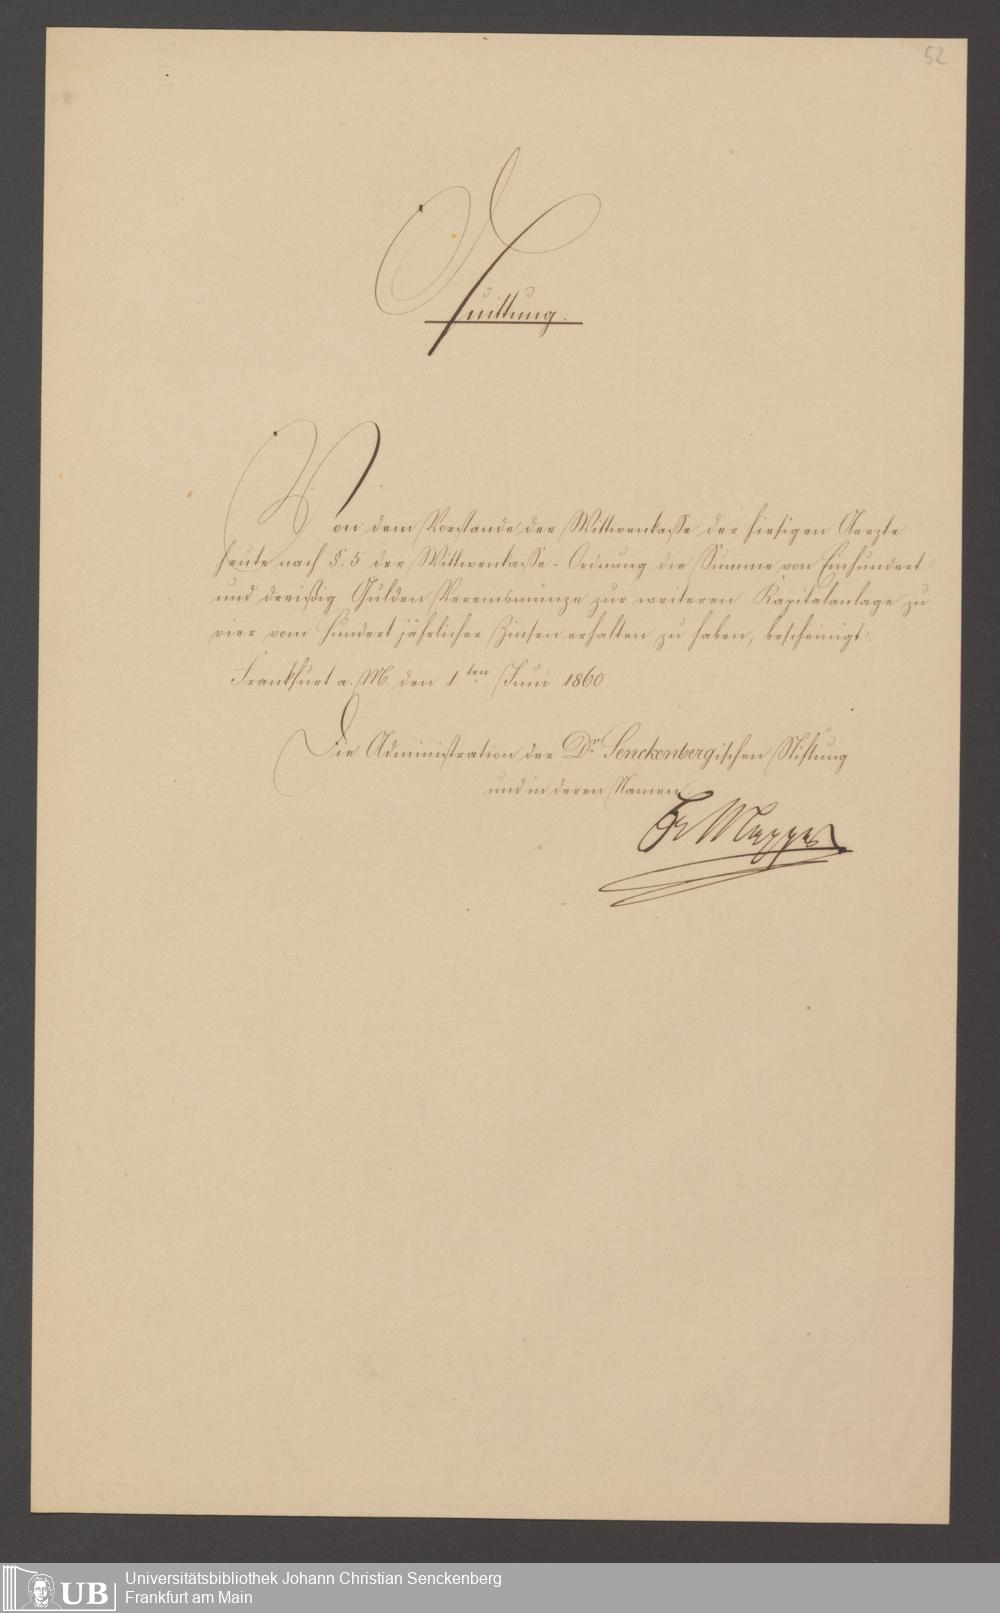 52
Quittung.
Von dem Vorstande der Wittwenkasse der hiesigen Aerzte
heute nach §. 5 der Wittwenkasse-Ordnung die Summe von Einhundert
und dreißig Gulden Vereinsmünze zur weiteren Kapitalanlage zu
vier vom Hundert jährlicher Zinsen erhalten zu haben, bescheinigt.
Frankfurt a. M. den 1ten Juni 1860.
Die Administration der Dr. Senckenbergischen Stiftung
und in deren Namen.
Mappes
UB
Universitätsbibliothek Johann Christian Senckenberg
Frankfurt am Main